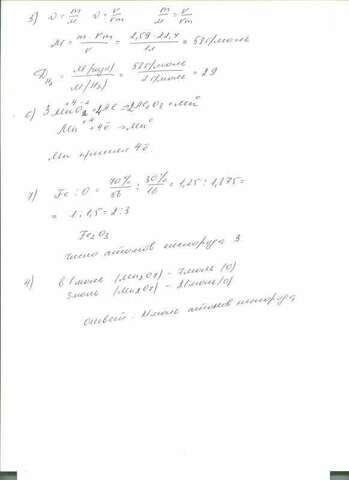 3) ν = m/M ν = V/Vm m/M = V/Vm
M = m · Vm / V = 2,59 · 22,4 / 1л = 58 г/моль
D H₂ = M(газа) / M(H₂) = 58 г/моль / 2 г/моль = 29
6) 3MnO₂ + 4Al = 2Al₂O₃ + Mn⁰
Mn⁺⁴ + 4ē → Mn⁰
Mn принял 4ē.
7) Fe : O = 70% / 56 : 30% / 16 = 1,25 : 1,875 =
= 1 : 1,5 = 2 : 3
Fe₂O₃
число атомов кислорода 3.
4) в 1 моль (Mn₂O₇) - 7 моль (O)
3 моль (Mn₂O₇) - 21 моль (O)
Ответ - 21 моль атомов кислорода